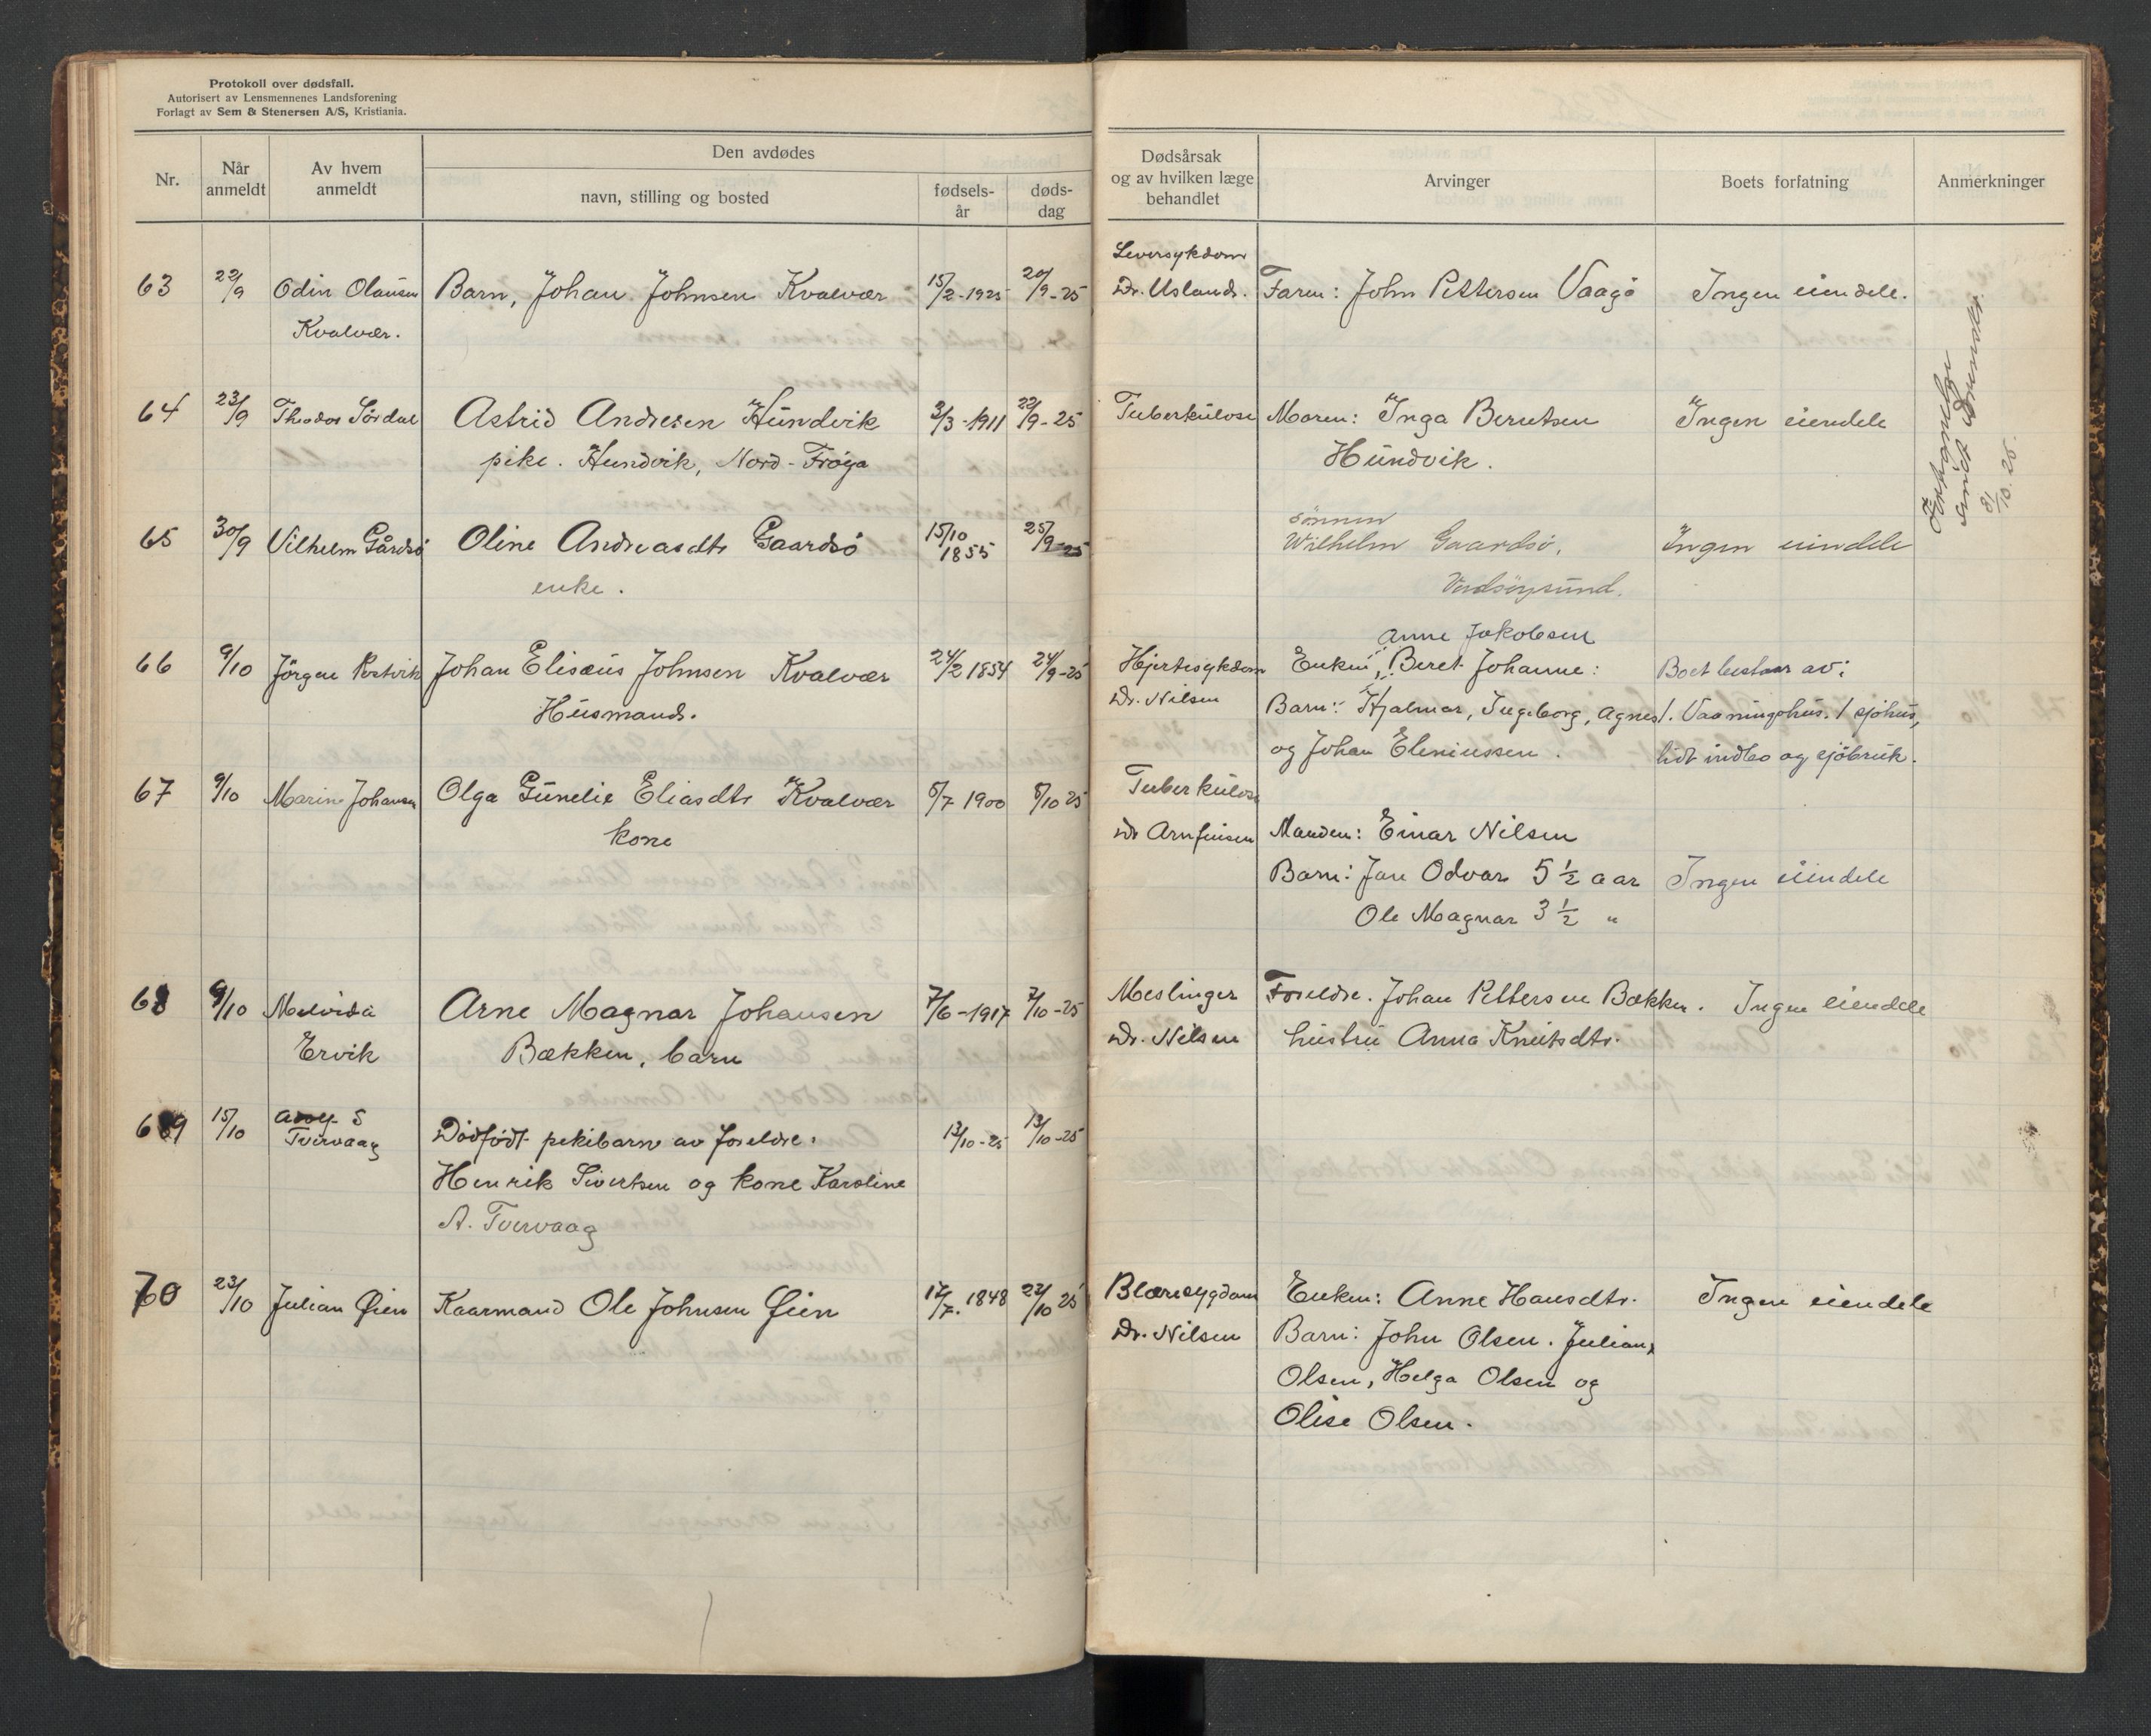 Protokoll over dødsfall.
Autorisert av Lensmennenes Landsforening
Forlagt av Sem & Stenersen A/S, Kristiania.
Nr.
Når anmeldt
Av hvem anmeldt
Den avdødes
navn, stilling og bosted
fødsels-år
døds-dag
Dødsårsak og av hvilken læge behandlet
Arvinger
Boets forfatning
Anmerkninger
63 22/9 Odin Olausen Barn, Johan Johnsen Kvalvær 15/2-1925 20/9-25
Kvalvær.
Leversykdom
Dr. Usland. Faren: John Pettersen Vaagø Ingen eiendele.
64 23/9 Theodor Sørdal Astrid Andresen Hundvik 3/3-1911 22/9-25
pike. Hundvik, Nord-Frøya
Tuberkulose Moren: Inga Berntsen Ingen eiendele
Hundvik.
65 30/9 Vilhelm Gårdsø Oline Andreasdtr Gaardsø 15/10 1855 25/9-25
enke.
sønnen
Wilhelm Gaardsø, Ingen eiendele
66 9/10 Jörgen Johan Eliseus Johnsen Kvalvær 24/2 1854 24/9-25
Husmand.
Anne Jakobsen
Hjertesykdom Enken, Beret Johanne: Boet bestaar av:
Dr. Nilsen Barn: Hjalmar, Ingeborg, Agnes 1. Vaaningshus. 1 sjøhus,
og Johan Eleniussen. lidt indbo og sjøbruk.
67 9/10 Marin Johansen Olga Gunelie Eliasdtr Kvalvær 5/7 1900 5/10 25
kone
Tuberkulose
Dr Arnfinsen Manden: Einar Nilsen
Barn: Jan Odvar 5 1/2 aar Ingen eiendele
Ole Magnar 3 1/2 "
68 9/10 Malvida Arne Magnar Johansen 7/6-1917 7/10-25
Ervik Bækken, barn
Meslinger Foreldre. Johan Pettersen Bækken. Ingen eiendele
Dr. Nilsen hustru Anna Knutsdtr.
69 15/10 Adolf S
Tvervaag Dødfødt pikebarn av foreldre: 13/10-25 13/10-25
Henrik Sivertsen og kone Karoline
A. Tvervaag
70 23/10 Julian Øien Kaarmand Ole Johnsen Øien 17/7. 1848 22/10 25
Blæresygdom Enken: Anne Hansdtr. Ingen eiendele
Dr. Nilsen Barn: John Olsen. Julian,
Olsen, Helga Olsen og
Olise Olsen.
sendt
31/10. 25.